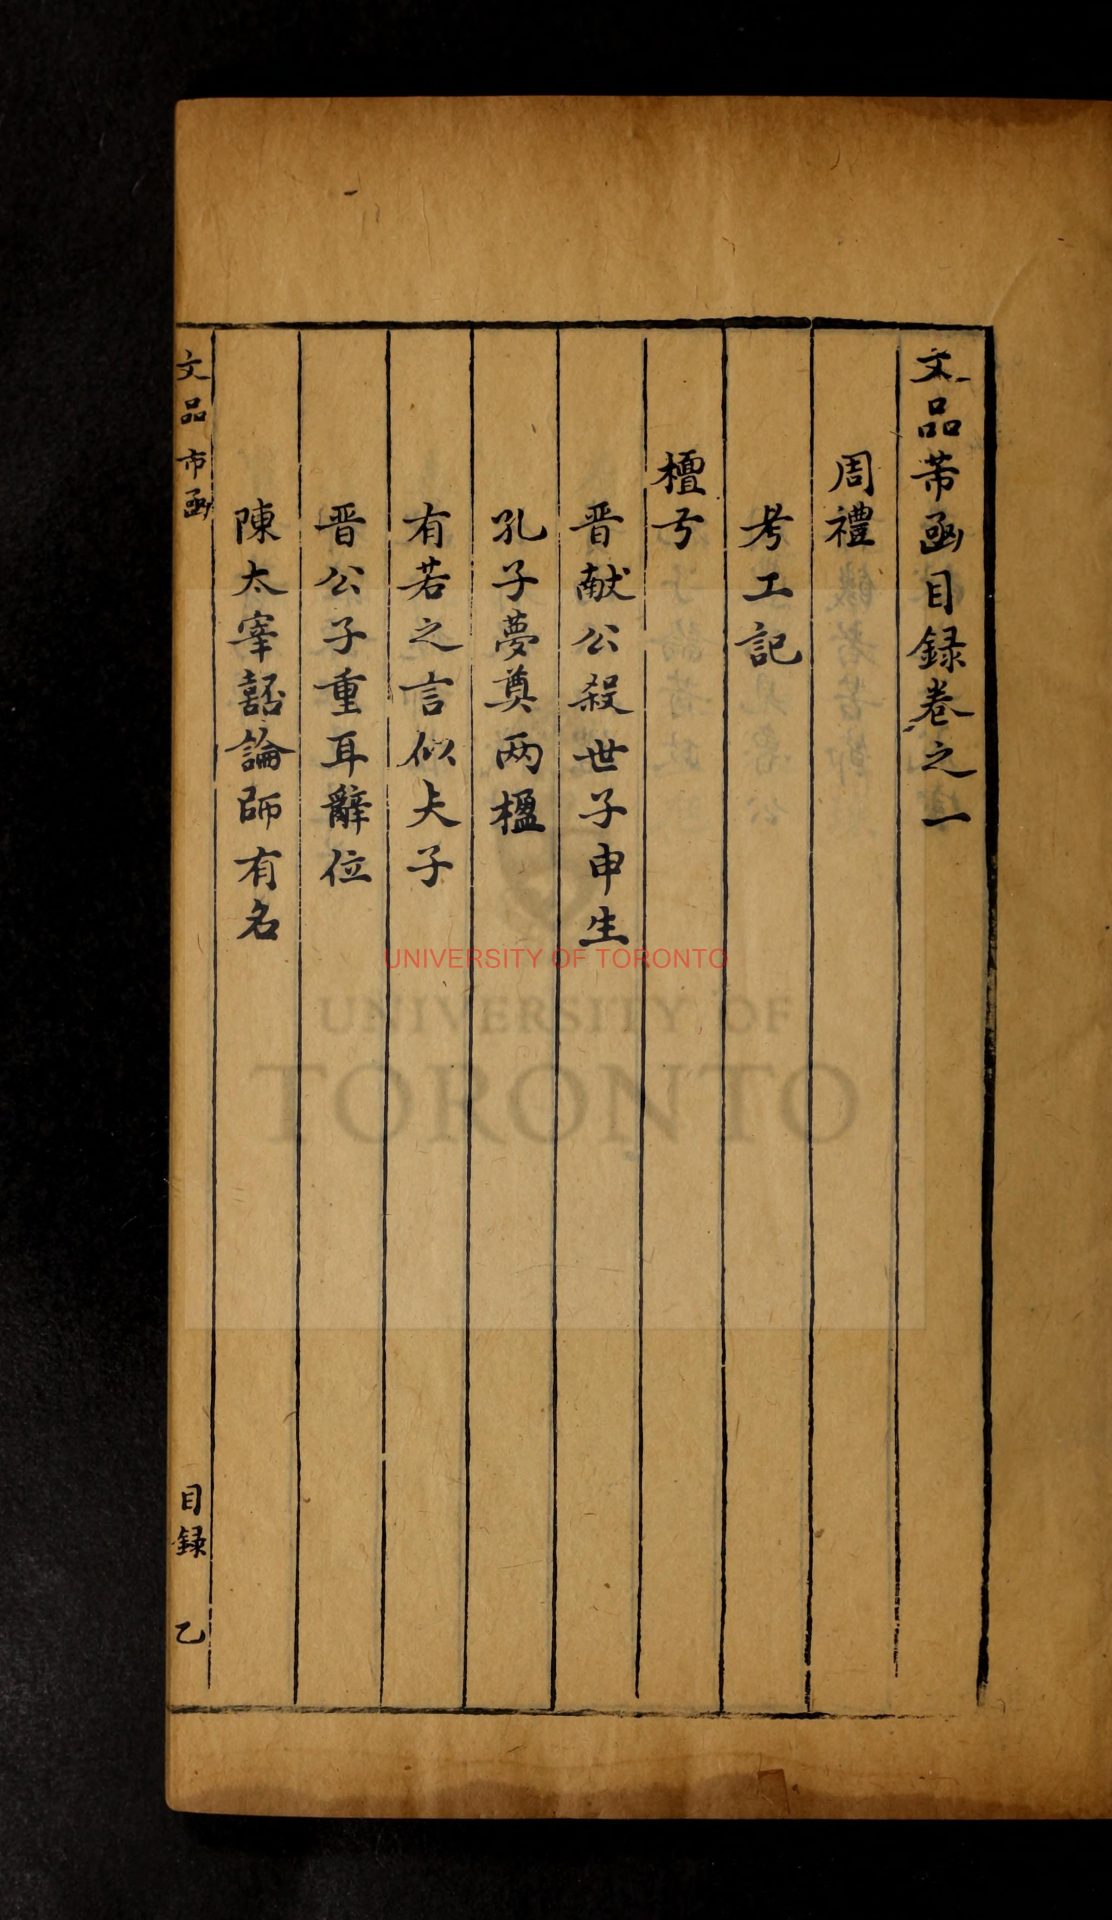 文品芾函目録卷之一
周禮
考工記
檀弓
晋献公殺世子申生
孔子夢奠两楹
有若之言似夫子
晋公子重耳辭位
陳太宰嚭論師有名
文品市函
目録
乙
UNIVERSITY OF TORONTO
UNIVERSITY OF
TORONTO